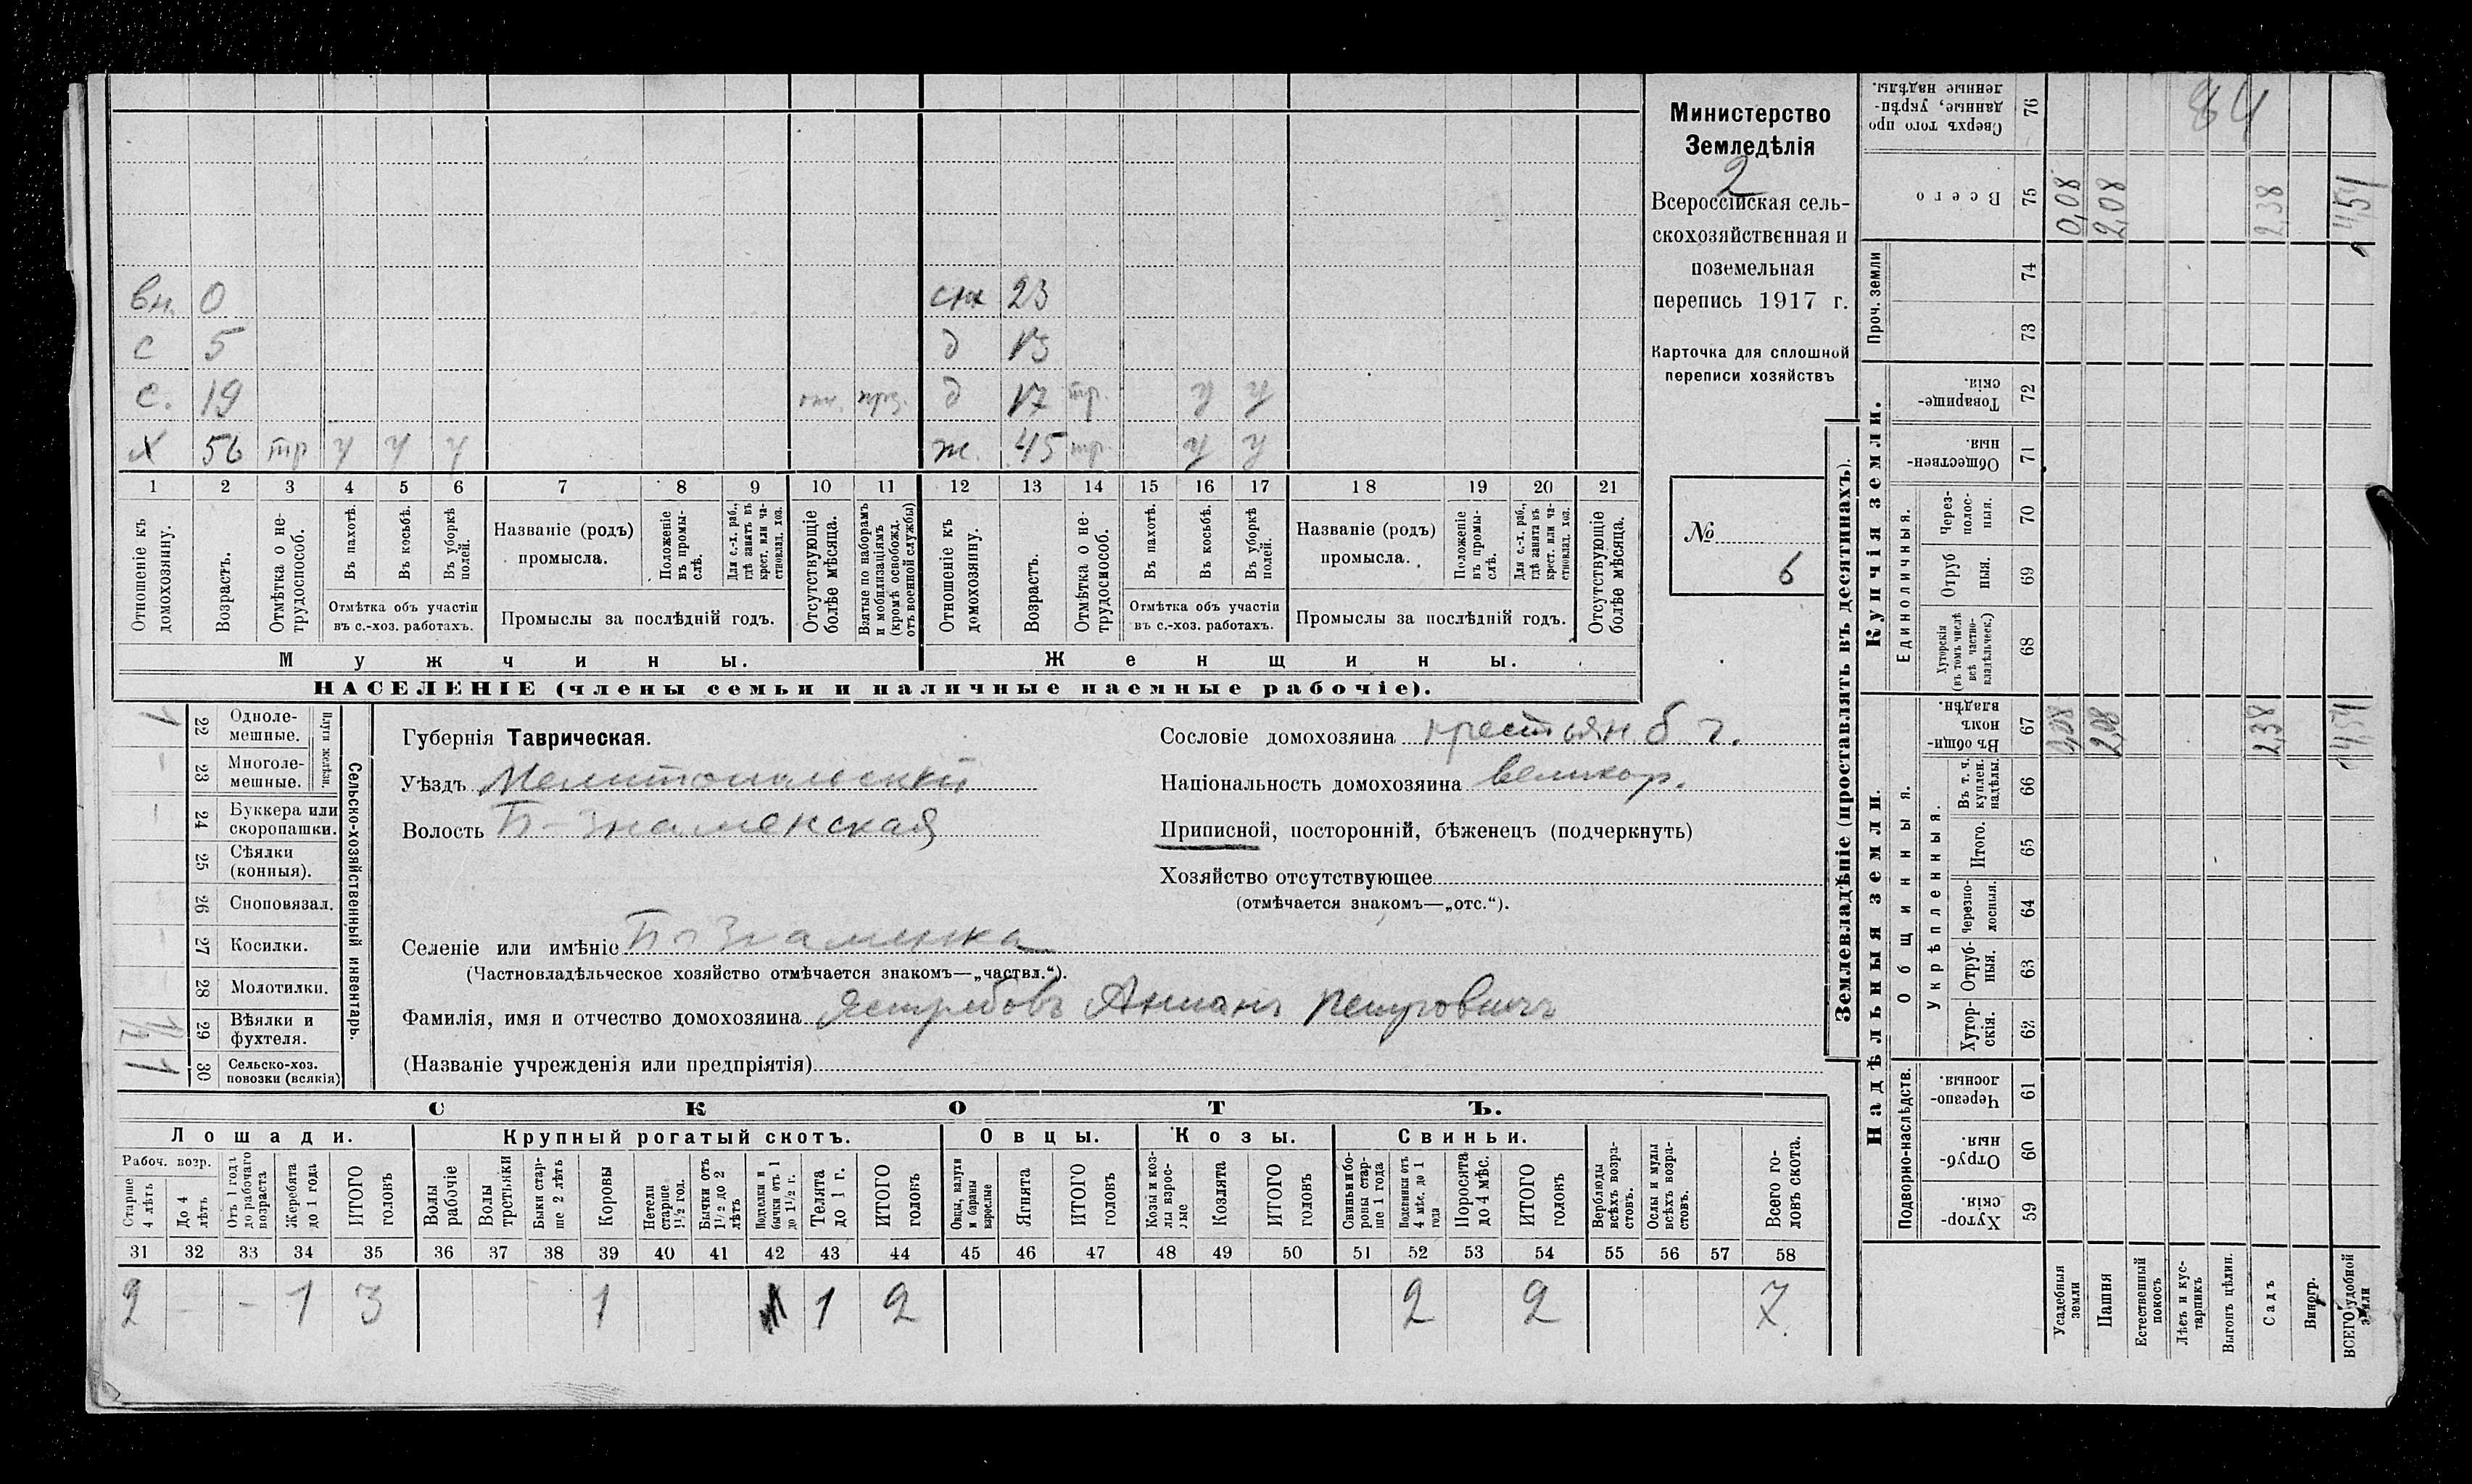 Министерство
Земледѣлія
2
Всероссійская сель-
скохозяйственная и
поземельная
перепись 1917 г.
Карточка для сплошной
переписи хозяйствъ
№
6
вн. 0 23
с 5 д 13
с. 19 д 17 тр. у у
х 56 тр у у у ж. 45 тр. у у
1 2 3 4 5 6 7 8 9 10 11 12 13 14 15 16 17 18 19 20 21
Отношеніе къ домохозяину.
Возрастъ.
Отмѣтка о не-трудоспособ.
Въ пахотѣ.
Въ косьбѣ.
Въ уборкѣ полей.
Отмѣтка объ участіи
въ с.-хоз. работахъ.
Названіе (родъ)
промысла.
Положеніе въ промы-слѣ.
Для с.-х. раб., гдѣ занятъ въ крест. или ча-стновлад. хоз.
Промыслы за послѣдній годъ.
Отсутствующіе болѣе мѣсяца.
Взятые по наборамъ и мобилизаціямъ (кромѣ освобожд. отъ военной службы)
Отношеніе къ домохозяину.
Возрастъ.
Отмѣтка о не-трудоспособ.
Въ пахотѣ.
Въ косьбѣ.
Въ уборкѣ полей.
Отмѣтка объ участіи
въ с.-хоз. работахъ.
Названіе (родъ)
промысла.
Положеніе въ промы-слѣ.
Для с.-х. раб., гдѣ занята въ крест. или ча-стновлад. хоз.
Промыслы за послѣдній годъ.
Отсутствующіе болѣе мѣсяца.
Мужчины.
Женщины.
НАСЕЛЕНІЕ (члены семьи и наличные наемные рабочіе).
Сельско-хозяйственный инвентарь.
Плуги желѣзн.
22 Одноле-
мешные.
1
23 Многоле-
мешные.
24 Буккера или
скоропашки.
25 Сѣялки
(конныя).
26 Сноповязал.
27 Косилки.
28 Молотилки.
29 Вѣялки и
фухтеля.
30 Сельско-хоз.
повозки (всякія)
1
Губернія Таврическая.
Уѣздъ Мелитопольскій
Волость Б-Знаменская
Селеніе или имѣніе Б Знаменка
(Частновладѣльческое хозяйство отмѣчается знакомъ—„частвл.“).
Фамилія, имя и отчество домохозяина Ястребовъ Петровичъ
(Названіе учрежденія или предпріятія)
Сословіе домохозяина крестьян. б. г.
Національность домохозяина великор.
Приписной, посторонній, бѣженецъ (подчеркнуть)
Хозяйство отсутствующее
(отмѣчается знакомъ—„отс.“).
СКОТЪ.
Лошади.
Крупный рогатый скотъ.
Овцы.
Козы.
Свиньи.
Рабоч. возр.
Старше 4 лѣтъ
До 4 лѣтъ
Отъ 1 года до рабочаго возраста
Жеребята до 1 года
ИТОГО головъ
Волы рабочіе
Волы третьяки
Быки стар-ше 2 лѣтъ
Коровы
Нетели старше 1½ год.
Бычки отъ 1½ до 2 лѣтъ
Подтелки и бычки отъ 1 до 1½ г.
Телята до 1 г.
ИТОГО головъ
Овцы, валухи и бараны взрослые
Ягнята
ИТОГО головъ
Козы и коз-лы взрос-лые
Козлята
ИТОГО головъ
Свиньи и бо-ровы стар-ше 1 года
Подсвинки отъ 4 мѣс. до 1 года
Поросята до 4 мѣс.
ИТОГО головъ
Верблюды всѣхъ возра-стовъ.
Ослы и мулы всѣхъ возра-стовъ.
Всего го-ловъ скота.
31 32 33 34 35 36 37 38 39 40 41 42 43 44 45 46 47 48 49 50 51 52 53 54 55 56 57 58
2 - - 1 3 1 1 2 2 2 7
Землевладѣніе (проставлять въ десятинахъ).
Надѣльныя земли.
Купчія земли.
Проч. земли
Подворно-наслѣдств.
Общинныя.
Укрѣпленныя.
Единоличныя.
Хутор-скія. 59
Отруб-ныя. 60
Черезпо-лосныя. 61
Хутор-скія. 62
Отруб-ныя. 63
Черезпо-лосныя. 64
Итого. 65
Въ т. ч. куплен. надѣлы. 66
Въ общи-номъ владѣн. 67
Хуторскія (въ томъ числѣ всѣ частно-владѣльческ.) 68
Отруб ныя. 69
Через-полос-ныя. 70
Обществен-ныя. 71
Товарище-скія. 72
73
74
Всего 75
Сверхъ того про даные, укрѣп-ленные надѣлы. 76
84
Усадебныя земли 0,08 0,08
Пашня 2,08 2,08
Естественный покосъ
Лѣсъ и кус-тарникъ
Выгонъ цѣлин.
Садъ 2,38 2,38
Виногр.
ВСЕГО удобной земли 4,54 4,54